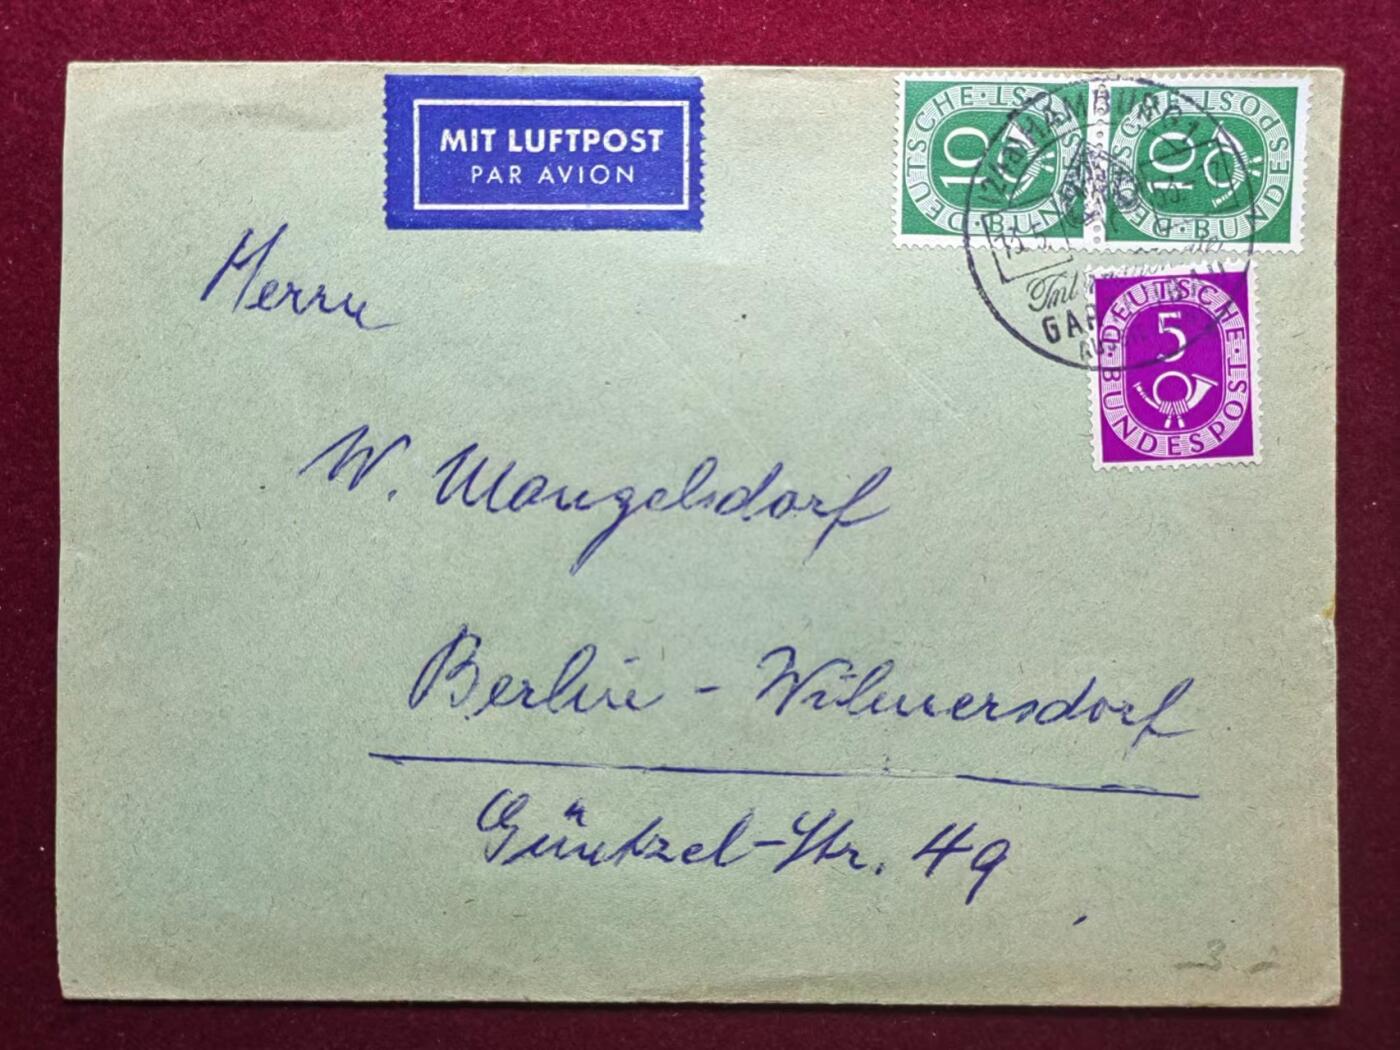 MIT LUFTPOST
PAR AVION
DEUTSCHE · BUNDESPOST
10
DEUTSCHE · BUNDESPOST
10
(24a) HAMBURG 1
DEUTSCHE · BUNDESPOST
5
Herrn
W. Mangelsdorf
Berlin - Wilmersdorf
Güntzel-Str. 49